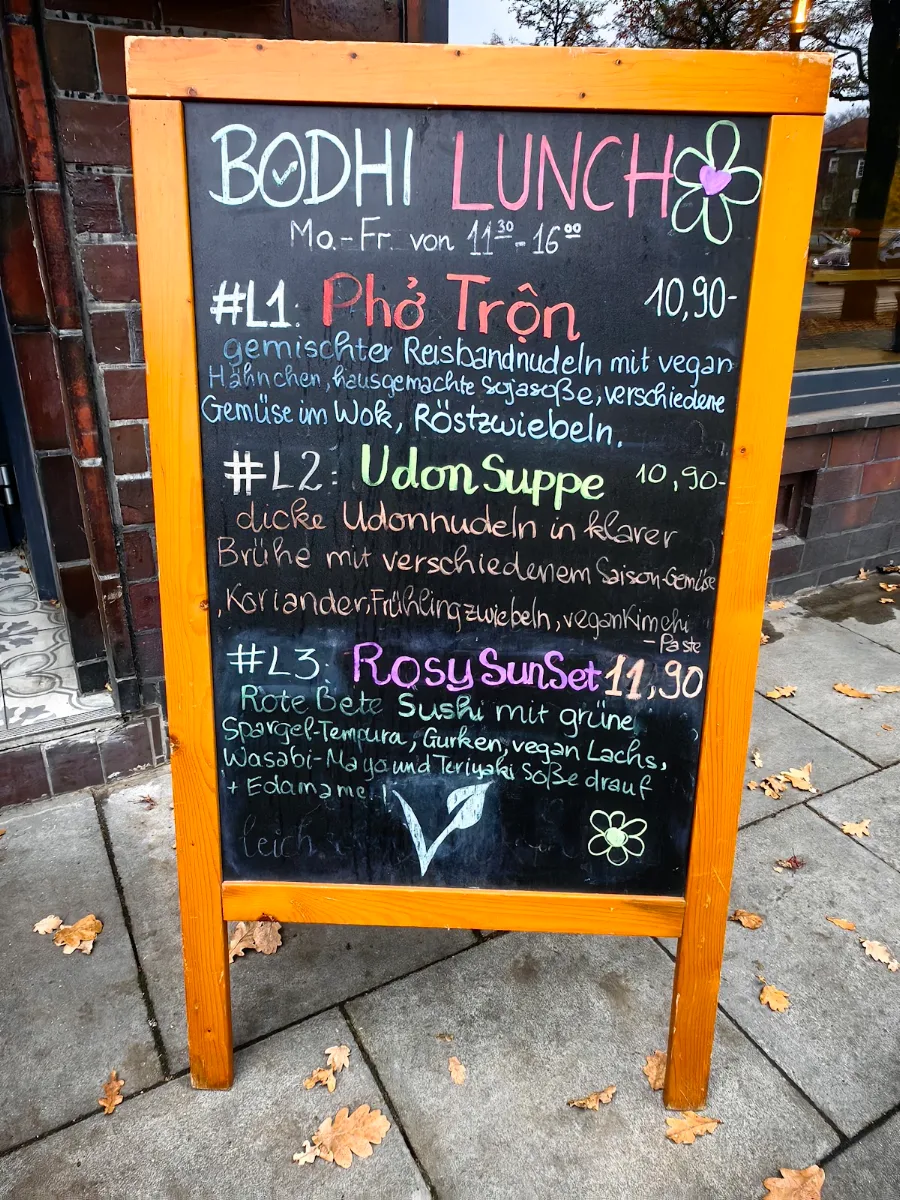 BODHI LUNCH
Mo.-Fr. von 11³⁰-16⁰⁰
#L1: Phở Trộn 10,90-
gemischter Reisbandnudeln mit vegan
Hähnchen, hausgemachte Sojasoße, verschiedene
Gemüse im Wok, Röstzwiebeln.
#L2: Udon Suppe 10,90-
dicke Udonnudeln in klarer
Brühe mit verschiedenem Saison-Gemüse
,Koriander,Frühlingzwiebeln, vegan Kimchi
-Paste
#L3: Rosy SunSet 11,90
Rote Bete Sushi mit grüne
Spargel-Tempura, Gurken, vegan Lachs,
Wasabi-Mayo und Teriyaki Soße drauf
+ Edamame !